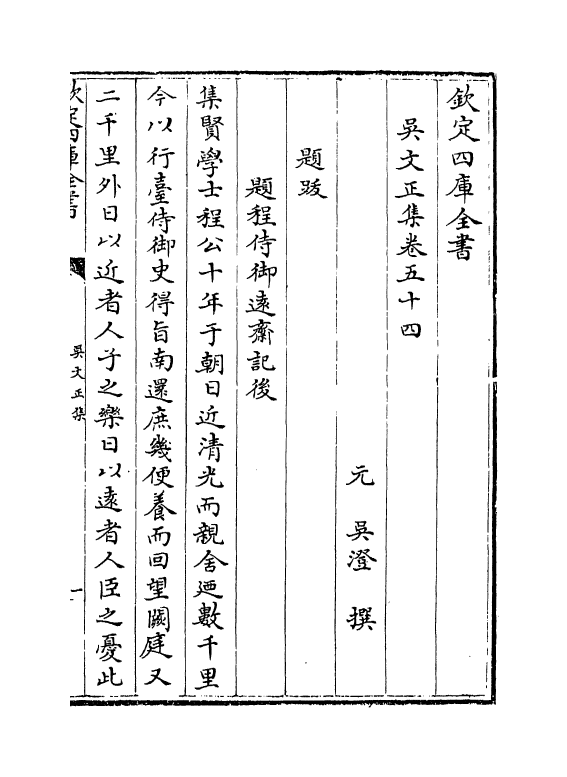 欽定四庫全書
吳文正集卷五十四
元 吳澄 撰
題跋
題程侍御逺齋記後
集賢學士程公十年于朝日近清光而親舍廼數千里
今以行臺侍御史得旨南還庶幾便養而回望闕庭又
二千里外日以近者人子之樂日以逺者人臣之憂此
欽定四庫全書
吳文正集
一